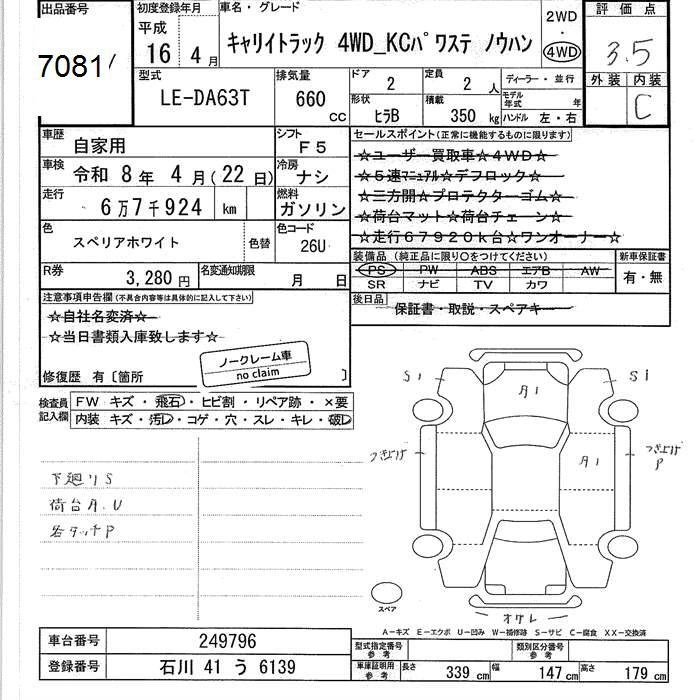 出品番号 初度登録年月 車名・グレード 2WD 評価点
7081 平成 16 4月 キャリイトラック 4WD_KCパワステ ノウハン ・ 4WD 3.5
外装 内装 C
型式 LE-DA63T 排気量 660 CC ドア 2 定員 2 人 ディーラー・並行
形状 ヒラB 積載 350 kg モデル年式 年 ハンドル 左・右
車歴 自家用 シフト F5 セールスポイント(正常に機能するものに限ります)
車検 令和 8年 4月(22日) 冷房 ナシ ☆ユーザー買取車☆4WD☆
☆5速マニュアル☆デフロック☆
走行 6万7千924 km 燃料 ガソリン ☆三方開☆プロテクターゴム☆
☆荷台マット☆荷台チェーン☆
色 スペリアホワイト 色替 色コード 26U ☆走行67920k台☆ワンオーナー☆
装備品(純正品に限り○をつけてください) 新車保証書
R券 3,280円 名変通知期限 月 日 PS PW ABS エアB AW 有・無
SR ナビ TV カワ
注意事項申告欄(不具合内容等は具体的に記入して下さい) 後日品 保証書・取説・スペアキー
☆自社名変済☆
☆当日書類入庫致します☆
ノークレーム車
no claim
修復歴 有〔箇所 〕
検査員記入欄 FW キズ・飛石・ヒビ割・リペア跡・×要
内装 キズ・汚レ・コゲ・穴・スレ・キレ・破レ
S1 A1 S1
つき上げ A1 つき上げP
下廻りS
荷台A.U
右タッチP
スペア オクレ
A-キズ E-エクボ U-凹み W-補修跡 S-サビ C-腐食 XX-交換済
車台番号 249796 型式指定番号 参考 類別区分番号 参考
登録番号 石川 41 う 6139 車庫証明用 参考 長さ 339 cm 幅 147 cm 高さ 179 cm